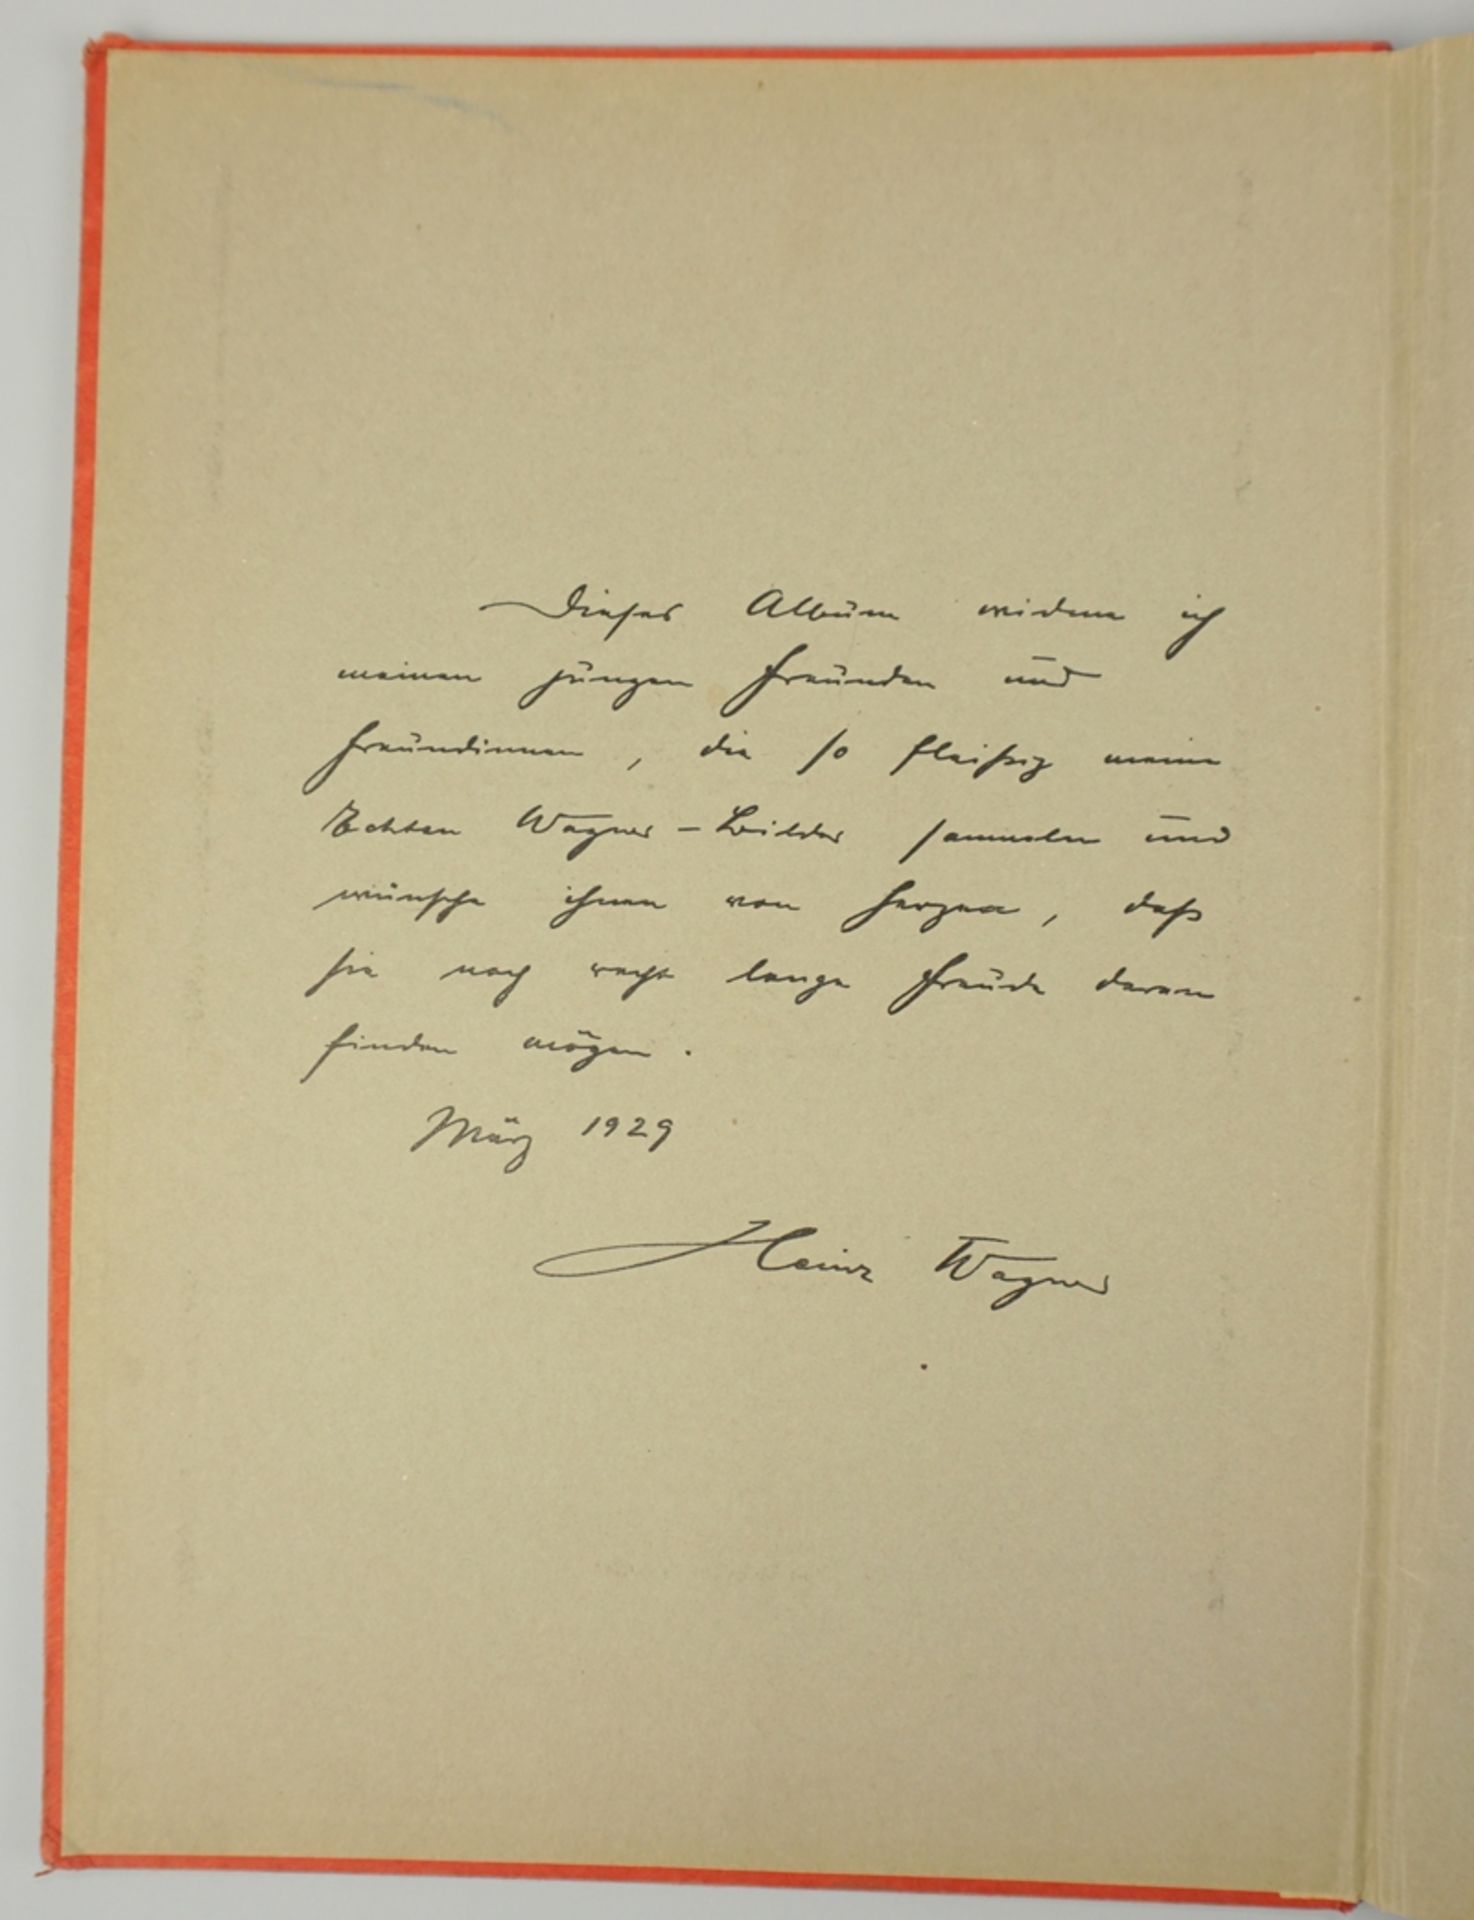 Dieses Album widme ich
meinen jungen Freunden und
Freundinnen, die so fleißig meine
Echten Wagner-Bilder sammeln und
wünsche ihnen von Herzen, daß
sie noch recht lange Freude daran
finden mögen.
März 1929
Heinz Wagner